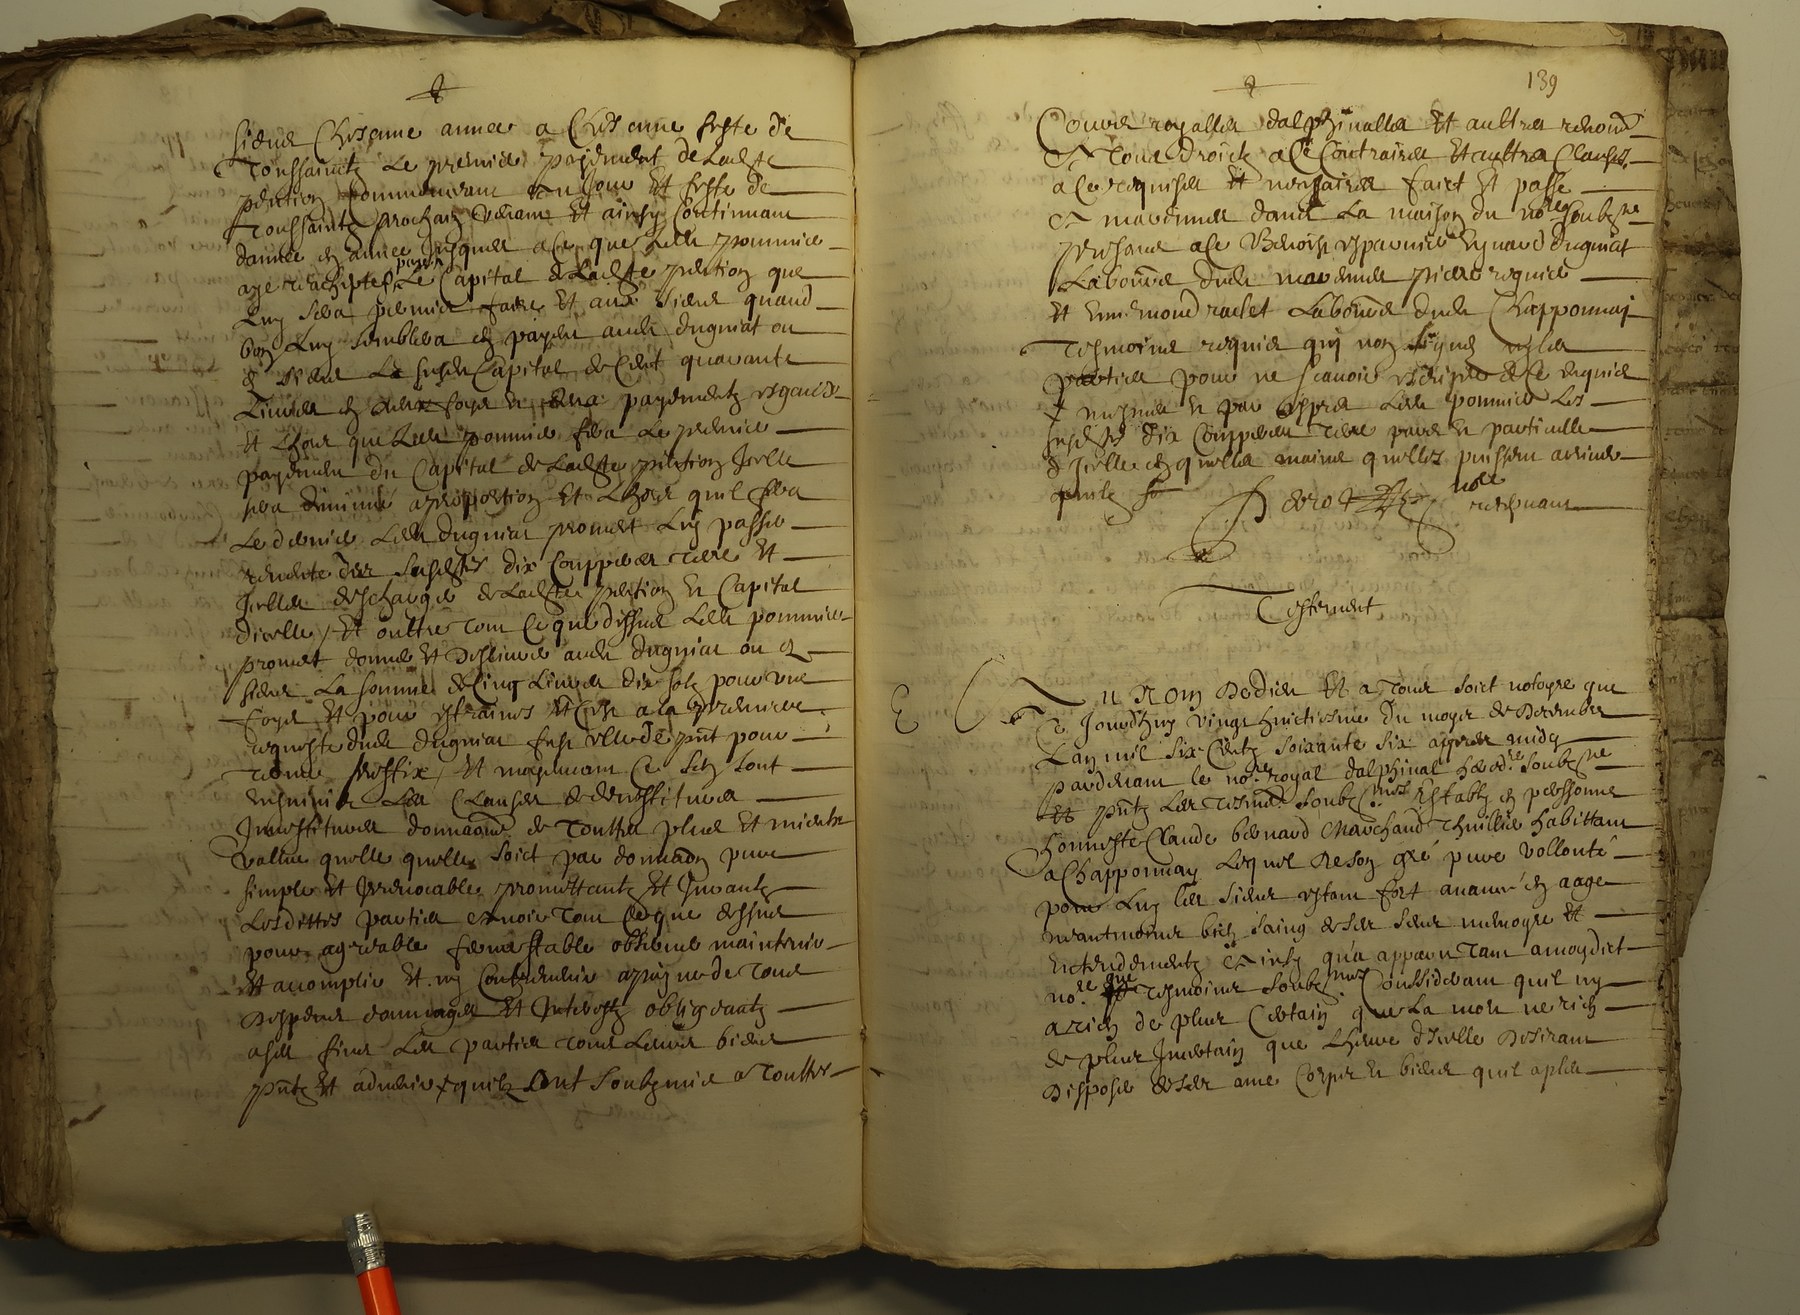 siens Chescune annee a Chescune feste de
Toussaintz Le premier payement de Ladte
pention Commencant au Jour Et feste de
Toussaintz prochain Venant Et ainsy Continuant
dannee en annee Jusques a ce que Ledt pommier
aye rachiptes payer Le Capital de Ladte pention que
Luy sera permier faire Et aux siens quand
bon Luy semblera en payant audt duguiat ou
es siens Le susdt Capital de Cent quarante
Livres en deux foys et deux payementz esgaulx
Et Lhors que Ledt pommier fera Le premier
payement du Capital de Ladte pention Jcelle
sera diminué a proportion Et Lhors quil fera
Le dernier Ledt duguiat promet Luy passer
revente des susdtes dix Coupperes terre Et
Jcelles descharger de Ladte pention et Capital
dicelle / Et oultre tout Ce que dessus Ledt pommier
promet donner Et deslivrer audt duguiat ou es
siens La somme de Cinq Livres dix solz pour une
foys Et pour estraines Et Ce a la premiere
requeste dudt duguiat
terme preffix / Et moyenant Ce sen sont
ensuivis Les Clauses de devestitures
Jnvestitures donnaons de Touttes plus Et mieulx
vallue quelle quelle soict par donnaon pure
simple Et Jrrevocable promettantz Et Jurantz
Lesdittes parties avoir tout Ce que dessus
pour agreable ferme stable observer maintenir
Et accomplir Et ny Contrevenir a payne de tous
despens dommages Et Jnterestz obligeantz
a ses fins Les parties tous Leurs biens
pntz Et advenir quilz ont soubzmis a Touttes
139
Cours royalles dalphinalles Et aultres renonc
a tous droictz a Ce Contraires Et aultres Clauses
a Ce requises Et necessaires faict Et passe
a marennes dans La maison du nore soubzne
presans a Ce Benoist esparnier Eynard duguiat
Laboureur dudt marennes pierre
Et Ennemond raclet Laboureur dudt Chapponnay
tesmoins requis quj non signes ny les
parties pour ne scavoir escripre de Ce enquis
Ledt pommier Les
susdtes dix Coupperes terre
d Jcelle en quelles mains quelles puissent arriver
nore
recepvant
Testement
Au Nom De Dieu Et a tous soict notoyre que
Ce Jourdhuy vingt huictiesme du moys de Decembre
Lan mil six Centz soixante six appres midy
pardevant le nore royal dalphinal heredre soubzne
Et pntz Les tesmoins soubznes Estably en personne
honneste Claude bernard Marchand Thuillier habittant
a Chapponnay Lequel De son gré pure vollonté
pour Luy Les siens estant fort avancé en aage
neantmoins bien sainq de ses sens memoyre Et
Entendementz ainsy qua apparu tant a moydict
nore que tesmoins soubznes Considerant quil ny
a rien de plus Certain que La mort ne rien
de plus Jncertain que Lheure dJcelle Desirant
Disposer de ses ame Corps et biens quil a pleu